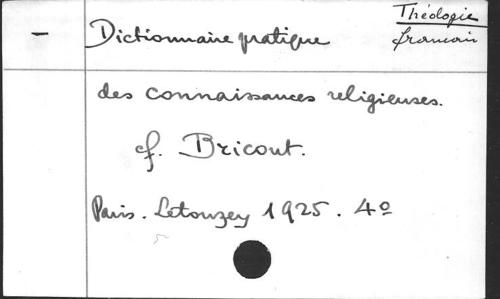 Théologie
français
— Dictionnaire pratique
des connaissances religieuses.
cf. Bricout.
Paris. Letouzey 1925. 4º